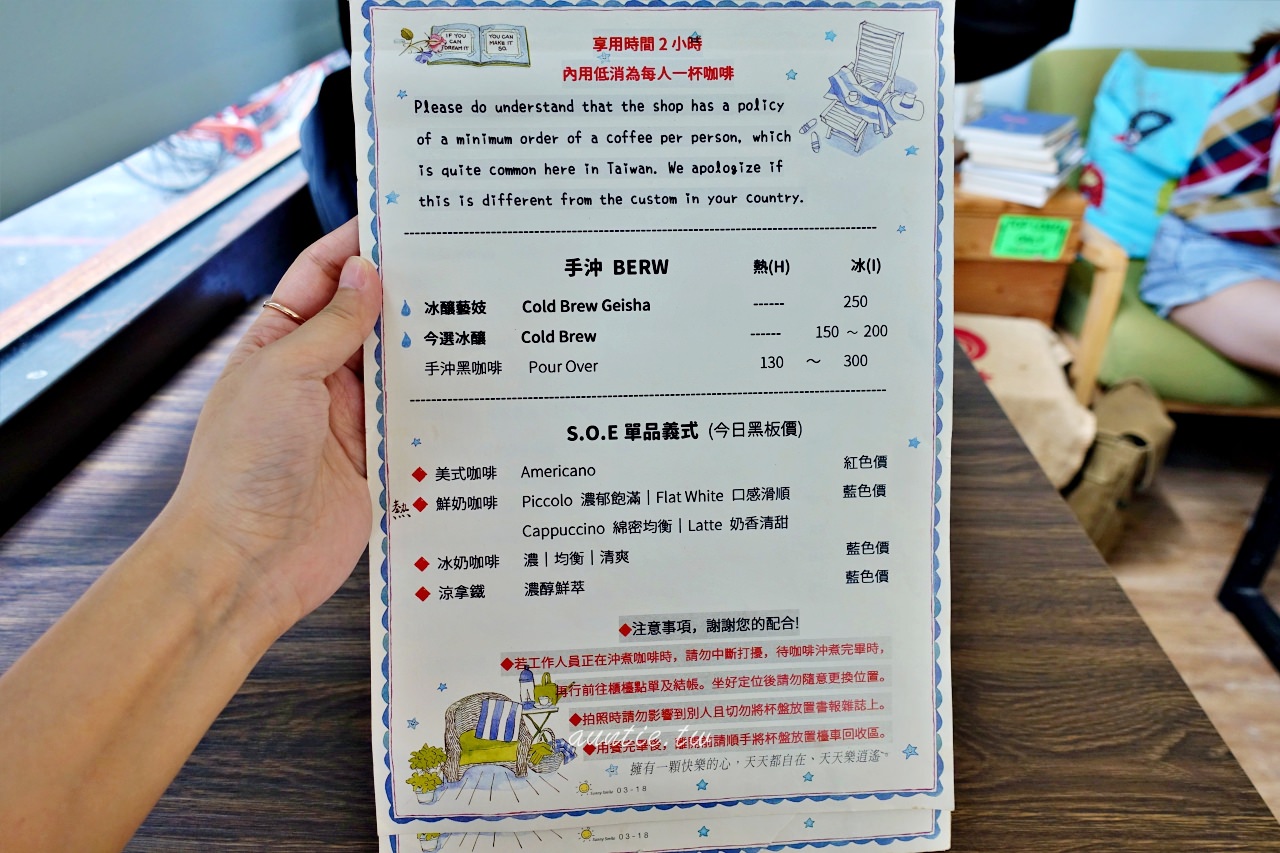 IF YOU CAN DREAM IT
YOU CAN MAKE IT SO.
享用時間 2 小時
內用低消為每人一杯咖啡
Please do understand that the shop has a policy
of a minimum order of a coffee per person, which
is quite common here in Taiwan. We apologize if
this is different from the custom in your country.
手沖 BERW 熱(H) 冰(I)
冰釀藝妓 Cold Brew Geisha ------ 250
今選冰釀 Cold Brew ------ 150 ～ 200
手沖黑咖啡 Pour Over 130 ～ 300
S.O.E 單品義式 (今日黑板價)
美式咖啡 Americano 紅色價
熱 鮮奶咖啡 Piccolo 濃郁飽滿｜Flat White 口感滑順 藍色價
Cappuccino 綿密均衡｜Latte 奶香清甜
冰奶咖啡 濃｜均衡｜清爽 藍色價
涼拿鐵 濃醇鮮萃 藍色價
◆注意事項，謝謝您的配合!
◆若工作人員正在沖煮咖啡時，請勿中斷打擾，待咖啡沖煮完畢時，
再行前往櫃檯點單及結帳。坐好定位後請勿隨意更換位置。
◆拍照時請勿影響到別人且切勿將杯盤放置書報雜誌上。
◆用餐完畢後，離開前請順手將杯盤放置檯車回收區。
auntie.tw
擁有一顆快樂的心，天天都自在、天天樂逍遙~
03-18
03-18